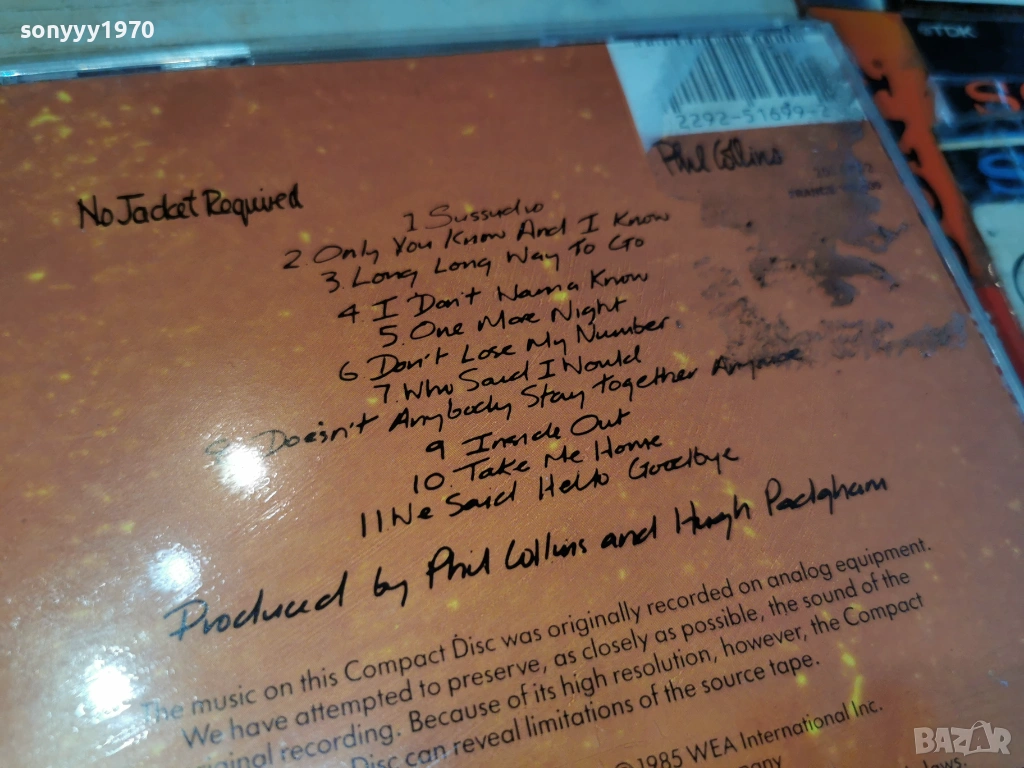 sonyyy1970
TDK
2292-51699-2
Phil Collins
FRANCE
No Jacket Required
1 Sussudio
2 Only You Know And I Know
3. Long Long Way To Go
4 I Don't Wanna Know
5. One More Night
6 Don't Lose My Number.
7. Who Said I Would
8. Doesn't Anybody Stay together Anymore
9 Inside Out
10. Take Me Home
11 We Said Hello Goodbye
Produced by Phil Collins and Hugh Padgham
The music on this Compact Disc was originally recorded on analog equipment.
We have attempted to preserve, as closely as possible, the sound of the
original recording. Because of its high resolution, however, the Compact
Disc can reveal limitations of the source tape.
© 1985 WEA International Inc.
laws.
BAZAR